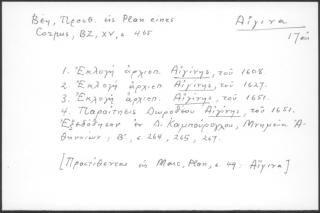 Βέη, Προσθ. εἰς Plan eines
Corpus, BZ, XV, σ. 465
Αἴγινα
17 αἰ.
1. Ἐκλογὴ ἀρχιεπ. Αἰγίνης, τοῦ 1608.
2. Ἐκλογὴ ἀρχιεπ. Αἰγίνης, τοῦ 1627.
3. Ἐκλογὴ ἀρχιεπ. Αἰγίνης, τοῦ 1651.
4. Παραίτησις Δωροθέου Αἰγίνης, τοῦ 1651.
Ἐξεδόθησαν ὑπὸ Δ. Καμπούρογλου, Μνημεῖα Ἀ-
θηναίων, Β΄, σ. 264, 265, 267.
[Προστίθενται εἰς Marc, Plan, σ. 49: Αἴγινα]